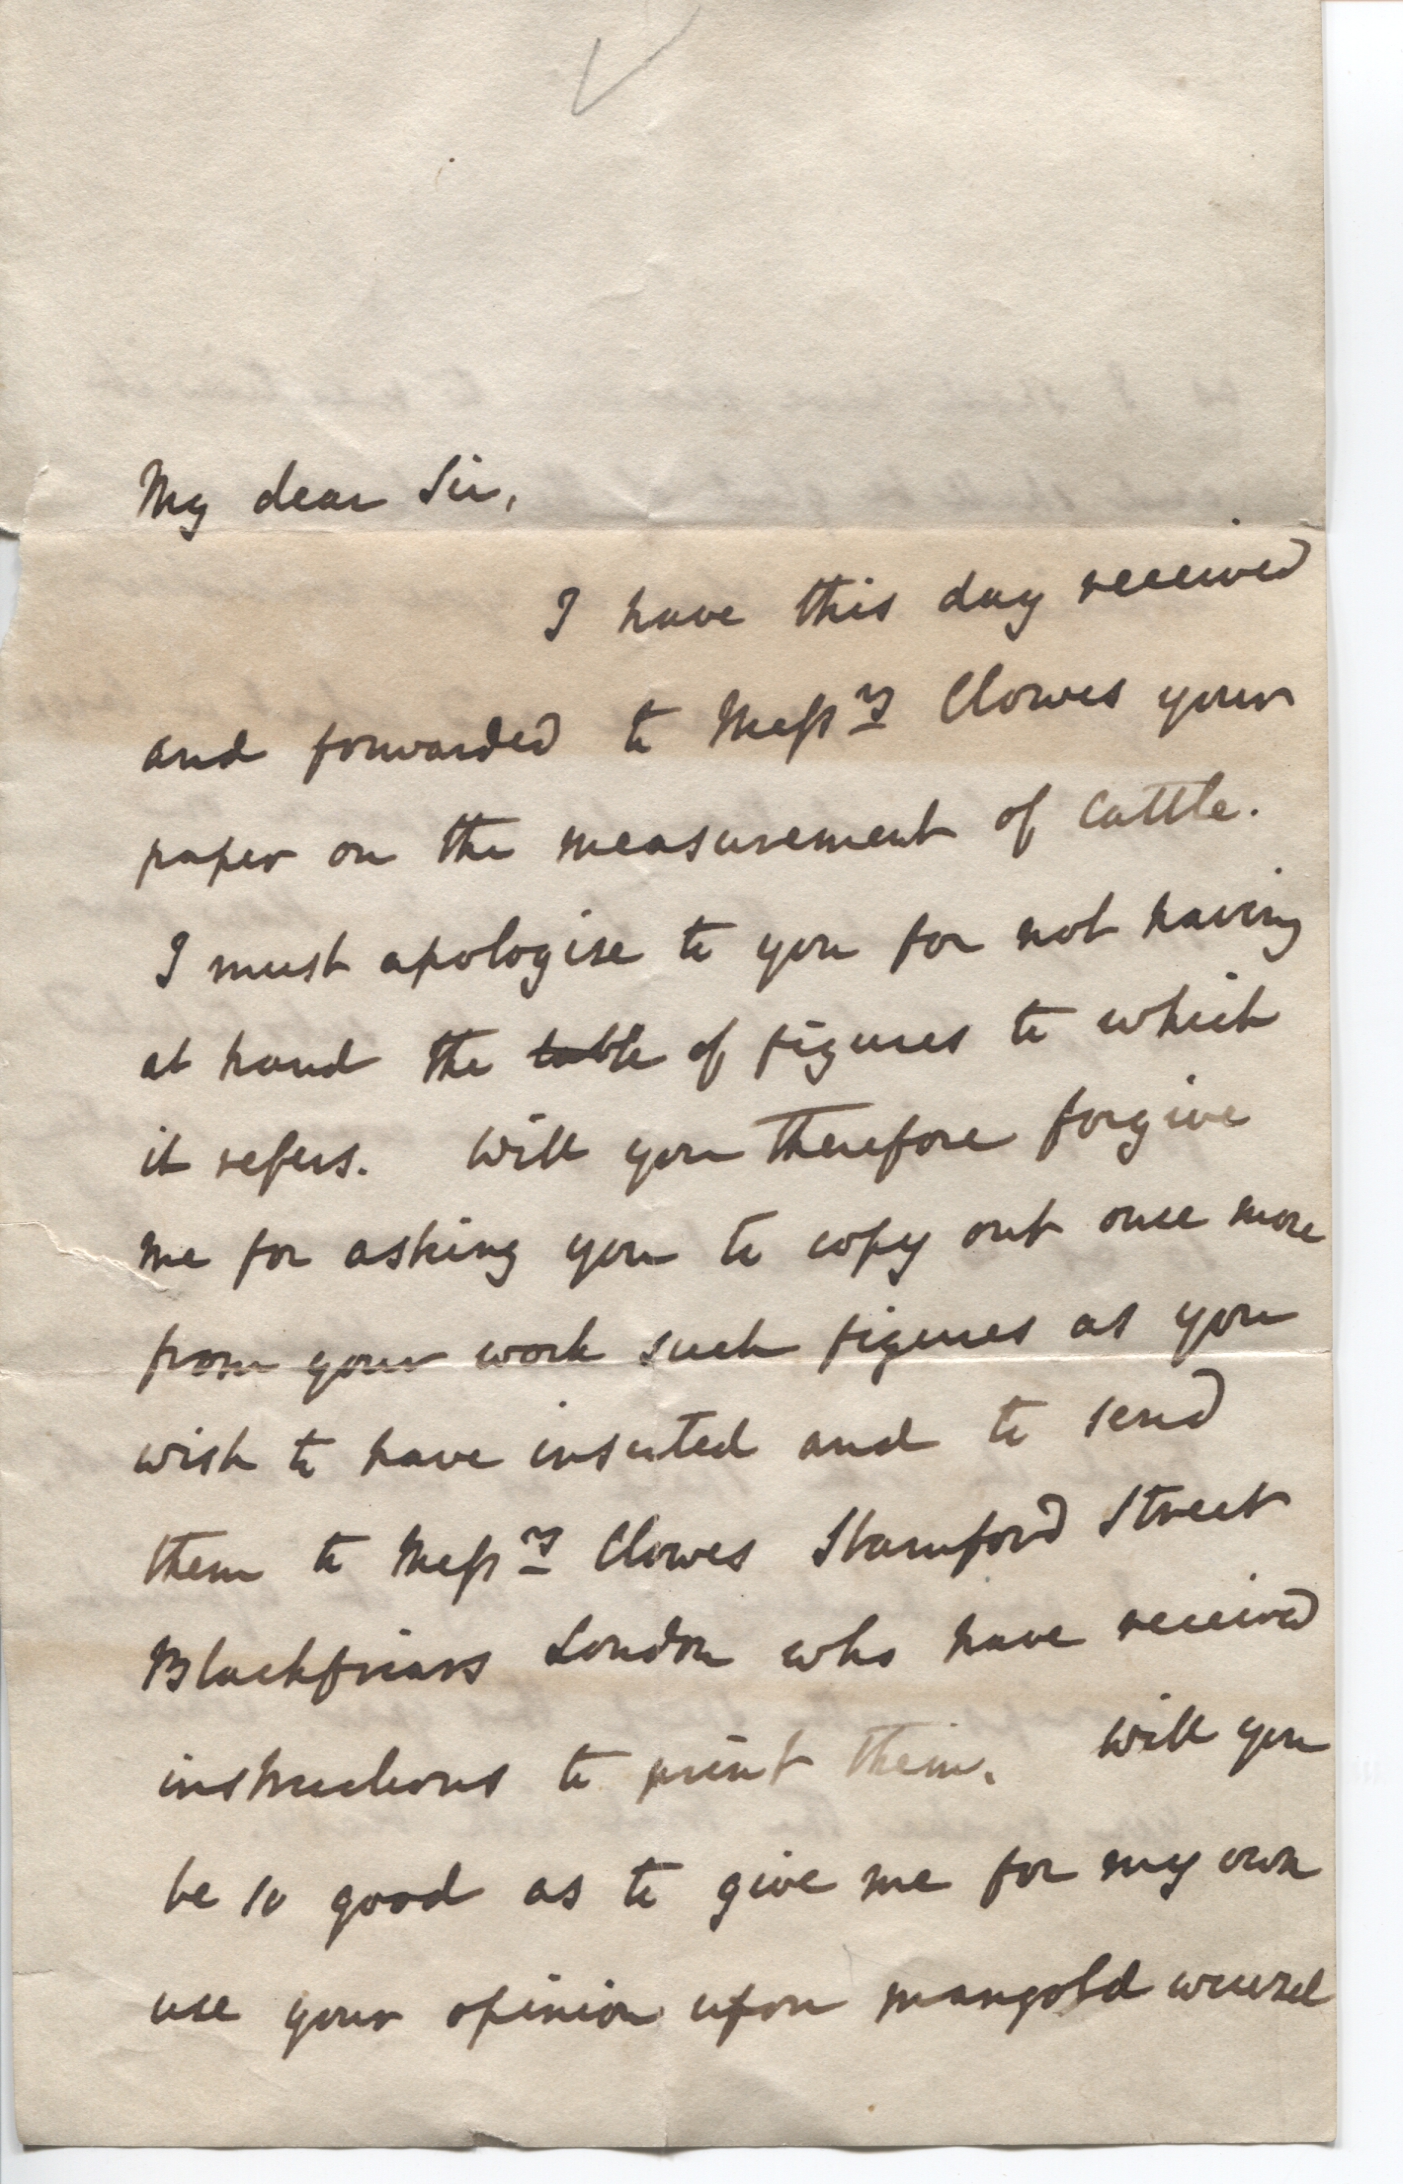 My dear Sir,
I have this day received
and forwarded to Messrs Clowes your
paper on the measurement of Cattle.
I must apologise to you for not having
at hand the table of figures to which
it refers. Will you therefore forgive
me for asking you to copy out once more
from your work such figures as you
wish to have inserted and to send
them to Messrs Clowes Stamford Street
Blackfriars London who have received
instructions to print them. Will you
be so good as to give me for my own
use your opinion upon mangold wurzel